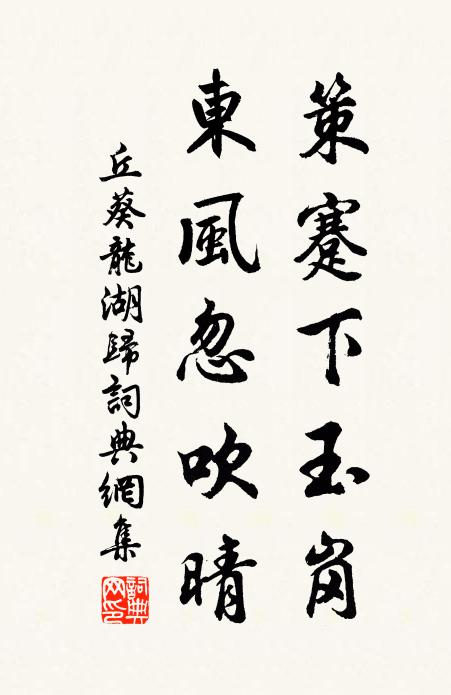 策蹇下玉岗
東風忽吹晴
丘葵龍湖歸詞典網集
詞典网印